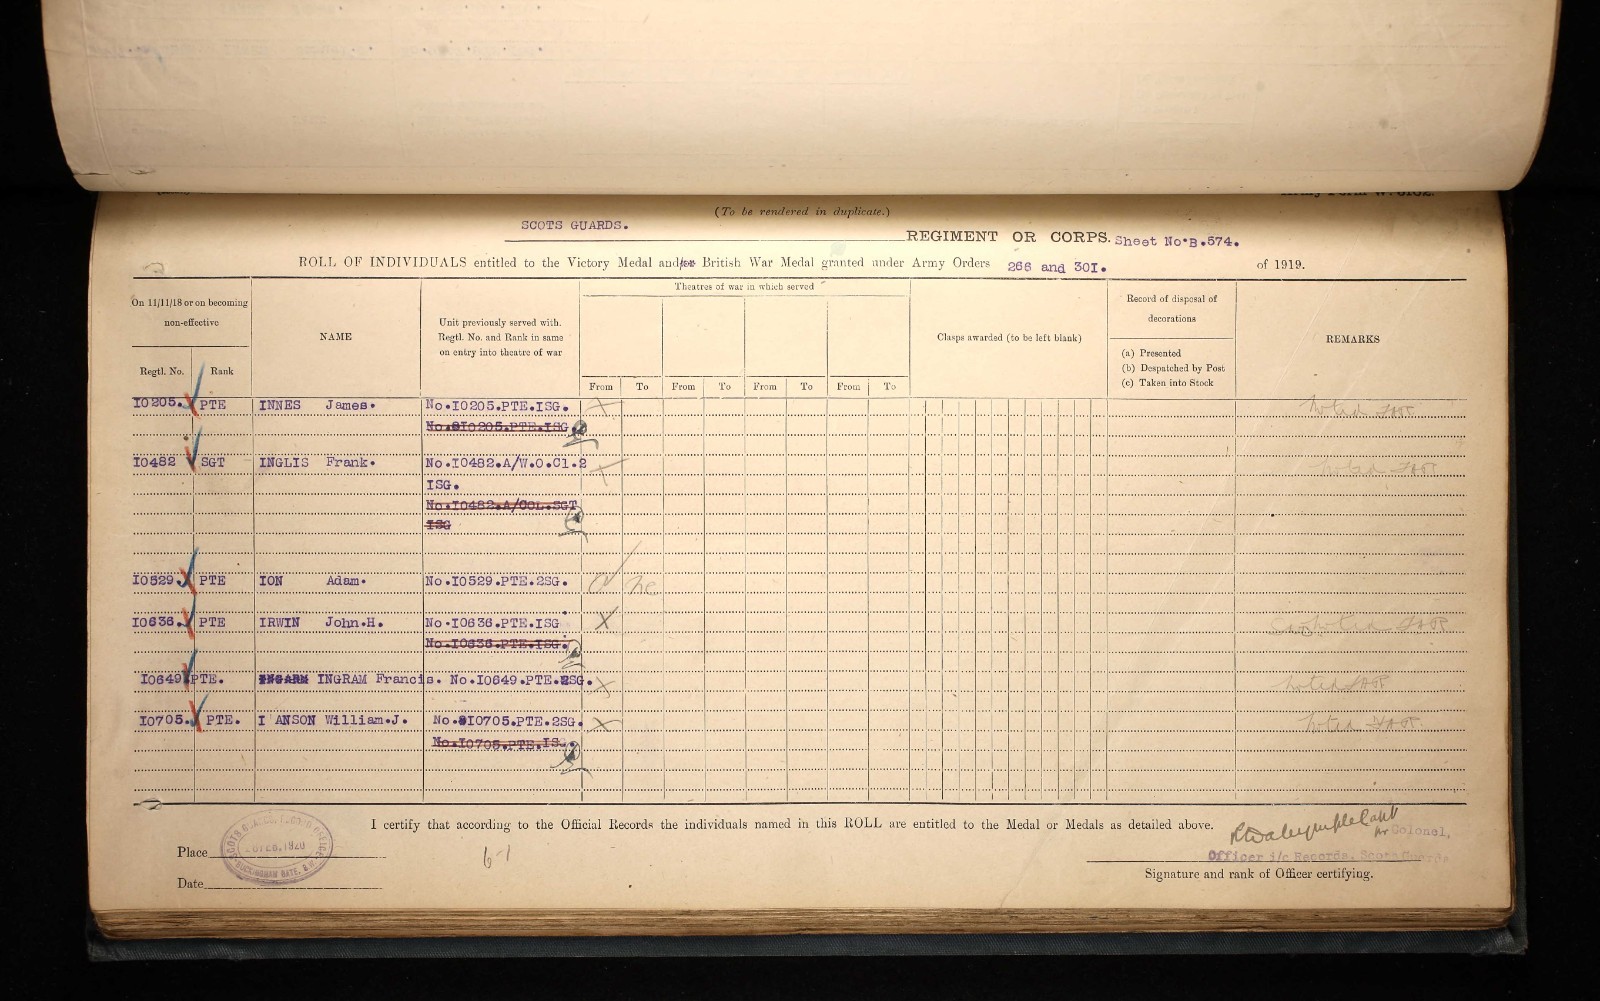 (To be rendered in duplicate.)
SCOTS GUARDS.
REGIMENT OR CORPS. Sheet No.B.574.
ROLL OF INDIVIDUALS entitled to the Victory Medal and/or British War Medal granted under Army Orders 266 and 30I. of 1919.
On 11/11/18 or on becoming non-effective
Regtl. No.
Rank
NAME
Unit previously served with.
Regtl. No. and Rank in same
on entry into theatre of war
Theatres of war in which served
From To From To From To From To
Clasps awarded (to be left blank)
Record of disposal of
decorations
(a) Presented
(b) Despatched by Post
(c) Taken into Stock
REMARKS
I0205. PTE INNES James. No.I0205.PTE.ISG. noted
No.I0205.PTE.ISG
I0482 SGT INGLIS Frank. No.I0482.A/W.O.Cl.2 noted
ISG.
No.I0482.A/COL.SGT
ISG
I0529 PTE ION Adam. No.I0529.PTE.2SG.
I0636. PTE IRWIN John.H. No.I0636.PTE.ISG noted
No.I0636.PTE.ISG.
I0649 PTE. INGRAM Francis. No.I0649.PTE.2SG. noted
I0705. PTE. I'ANSON William.J. No.I0705.PTE.2SG. noted
No.I0705.PTE.IS
I certify that according to the Official Records the individuals named in this ROLL are entitled to the Medal or Medals as detailed above.
Colonel,
Place
BUCKINGHAM GATE, S.W.
1920
6-1
Officer i/c Records, Scots Guards
Signature and rank of Officer certifying.
Date